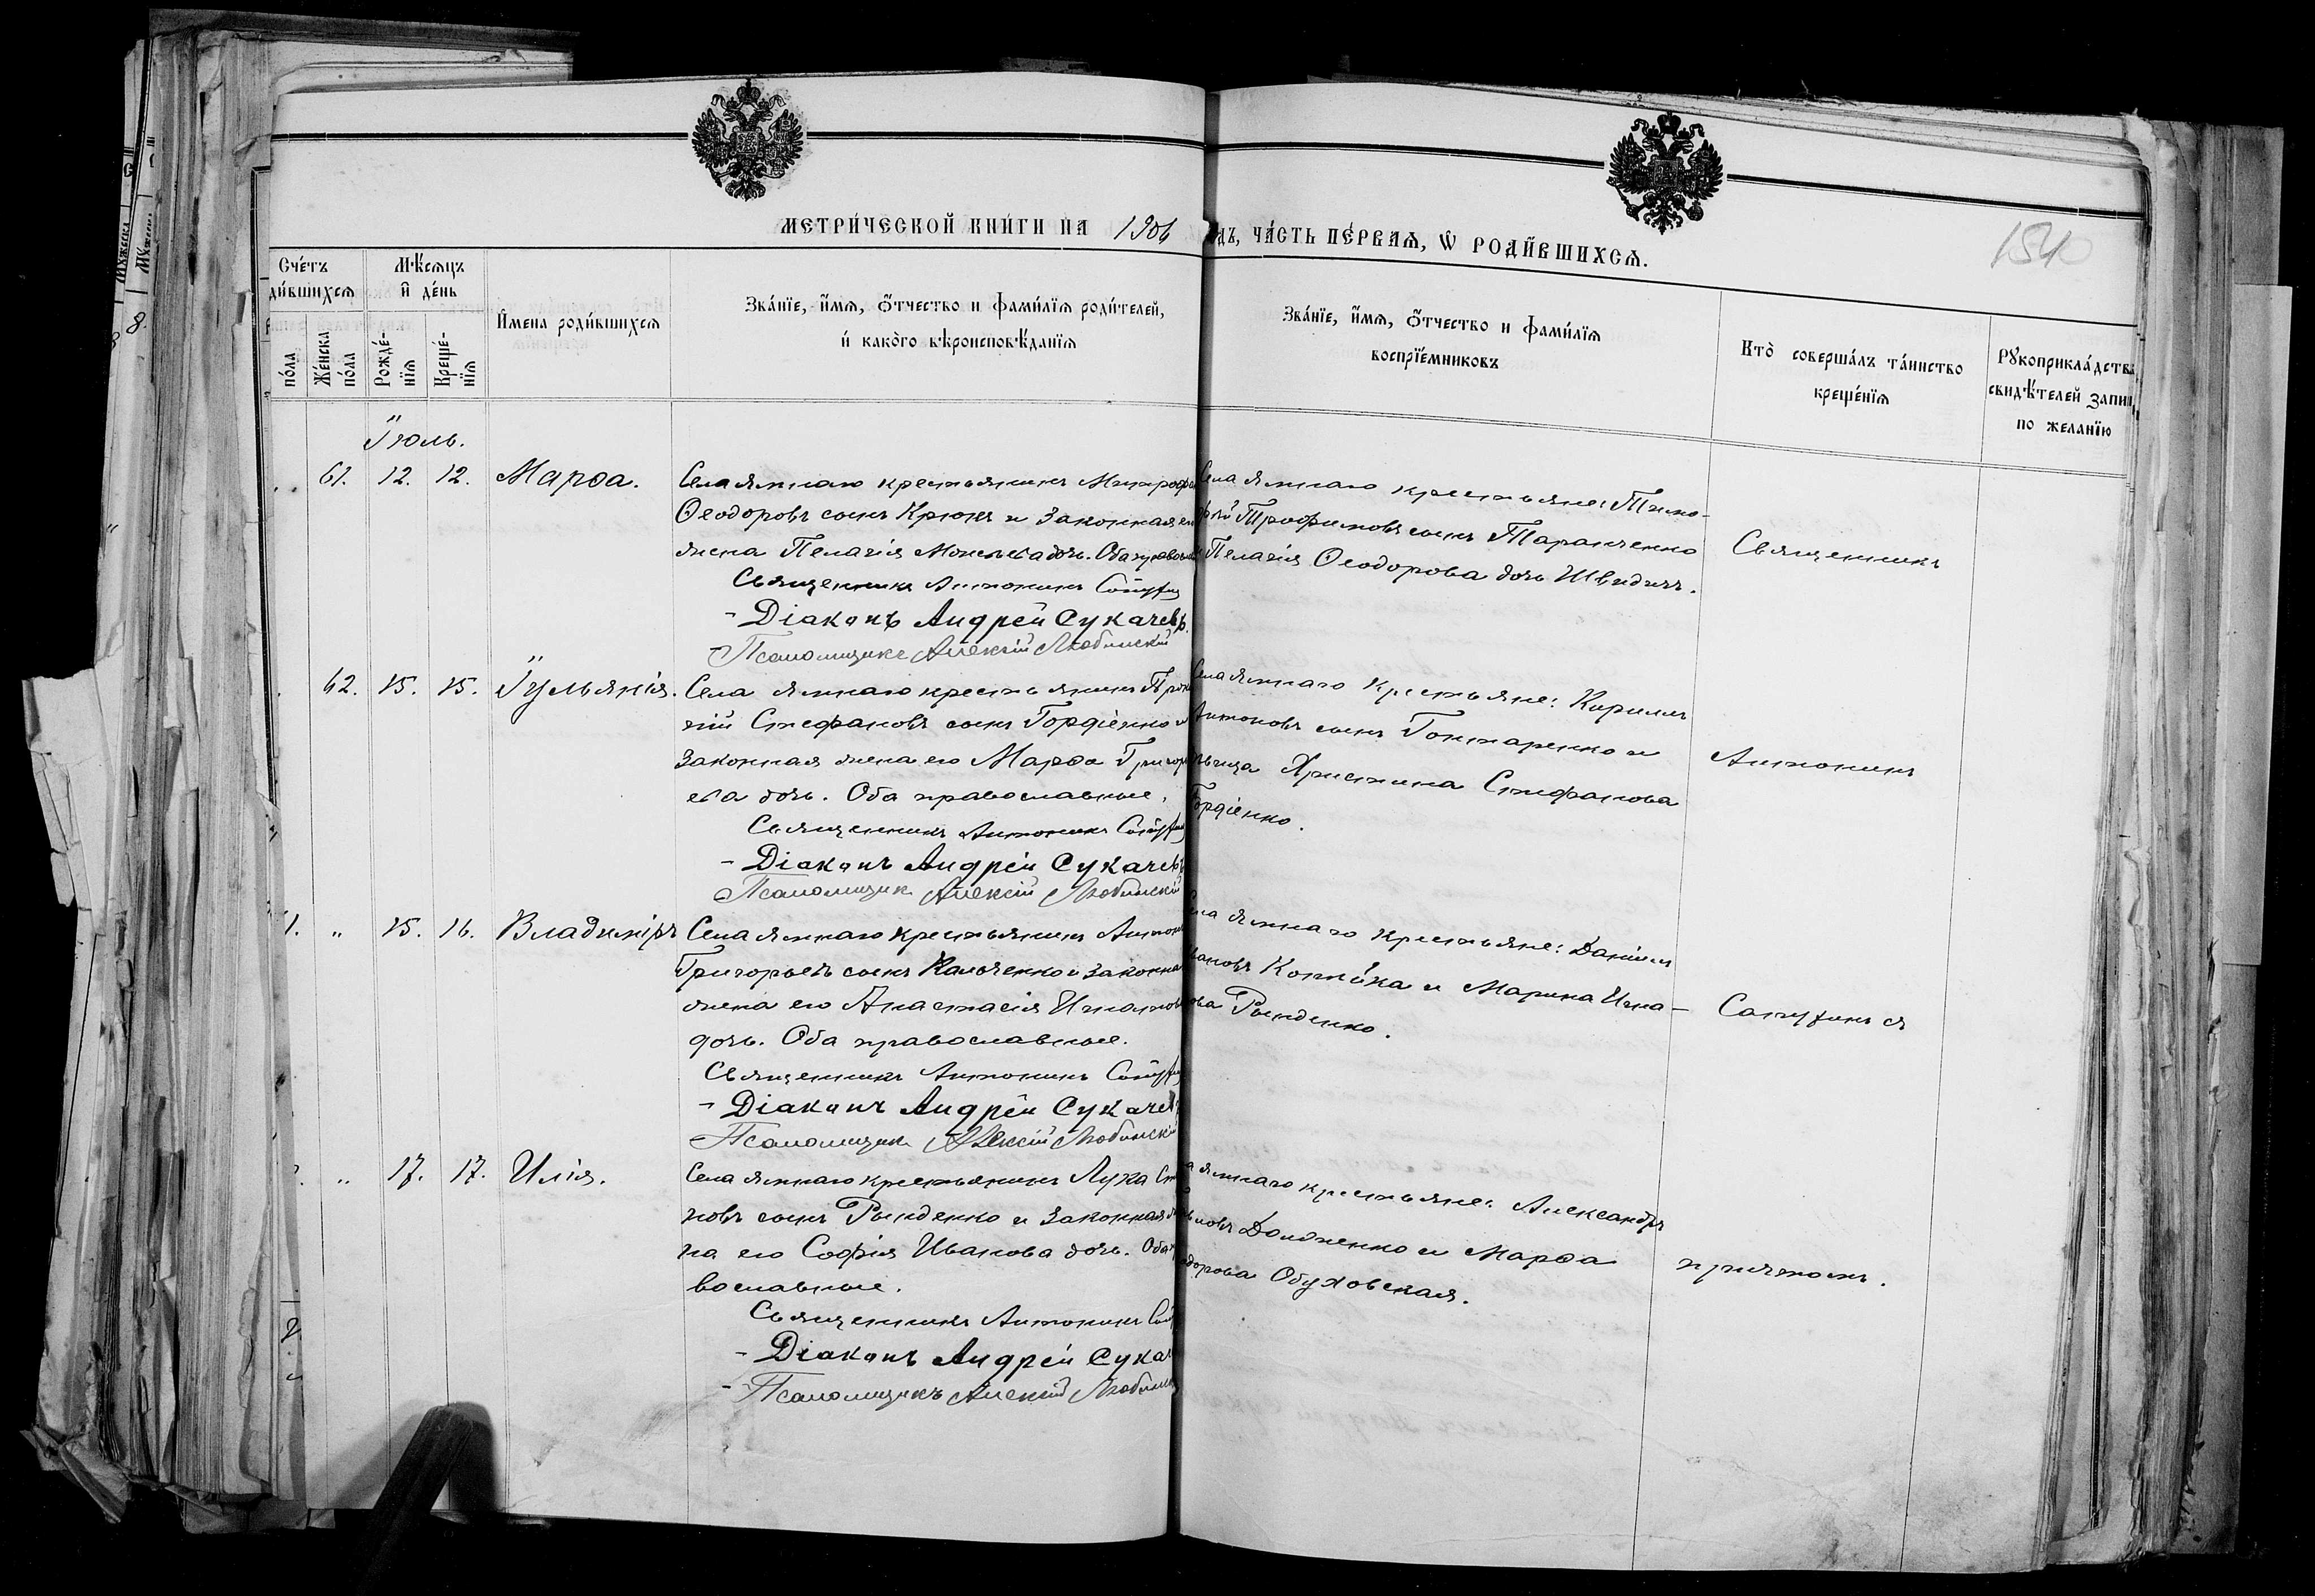 МЕТРИЧЕСКОЙ КНИГИ НА 1906
ДЪ, ЧАСТЬ ПЕРВАЯ, Ѡ РОДИВШИХСЯ.
154
Счетъ
дившихся
Мѣсяцъ
и день
пола
Женска
пола
Рожде-
нїя
Креще-
нїя
Имена родившихся
Званїе, имя, отчество и фамилїя родителей,
и какого вѣроисповѣданїя
Званїе, имя, отчество и фамилїя
воспрїемниковъ
Кто совершалъ таинство
крещенїя
Рꙋкоприкладства
свидѣтелей запи
по желанїю
Іюль.
61. 12. 12. Марѳа.
Села Яжнаго крестьянинъ Митрофа
Ѳеодоровъ сынъ Крюкъ и законная ег
жена Пелагія Моисеева дочь. Оба правосл
Священникъ Антонинъ
- Діаконъ Андрей Сукачевъ.
- Псаломщикъ Алексій Любинскій
Села Яжнаго крестьяне: Тимо-
фей Трофимовъ сынъ Таранченко
Пелагія Ѳеодорова дочь Швидичъ.
Священникъ
62. 15. 15. Іульянія.
Села Яжнаго крестьянинъ Проко
пій Стефановъ сынъ Гордіенко и
законная жена его Марѳа Григорь
ева дочь. Оба православные.
Священникъ Антонинъ
- Діаконъ Андрей Сукачевъ
Псаломщик Алексій Любинскій
Села Яжнаго крестьяне: Кириллъ
Антоновъ сынъ Гонтаренко и
Христина Стефанова
Гордіенко.
Антонинъ
1. " 15. 16. Владиміръ
Села Яжнаго крестьянинъ Антон
Григорьевъ сынъ Калюченко и законна
жена его Анастасія Игнатов
дочь. Оба православные.
Священникъ Антонинъ
- Діаконъ Андрей Сукачев
Псаломщик Алексій Любинскій
ла Яжнаго крестьяне: Даніилъ
вановъ Копѣйка и Марина Игна-
ова Рынденко.
Сапухинъ съ
" 17. 17. Илія.
Села Яжнаго крестьянинъ Лука
новъ сынъ Рынденко и законная же
на его Софія Иванова дочь. Оба п
вославные.
Священникъ Антонинъ
- Діаконъ Андрей Сукач
- Псаломщикъ Алексій Любин
а Яжнаго крестьяне: Александръ
Долженко и Марѳа
одорова Обуховская.
причтомъ.